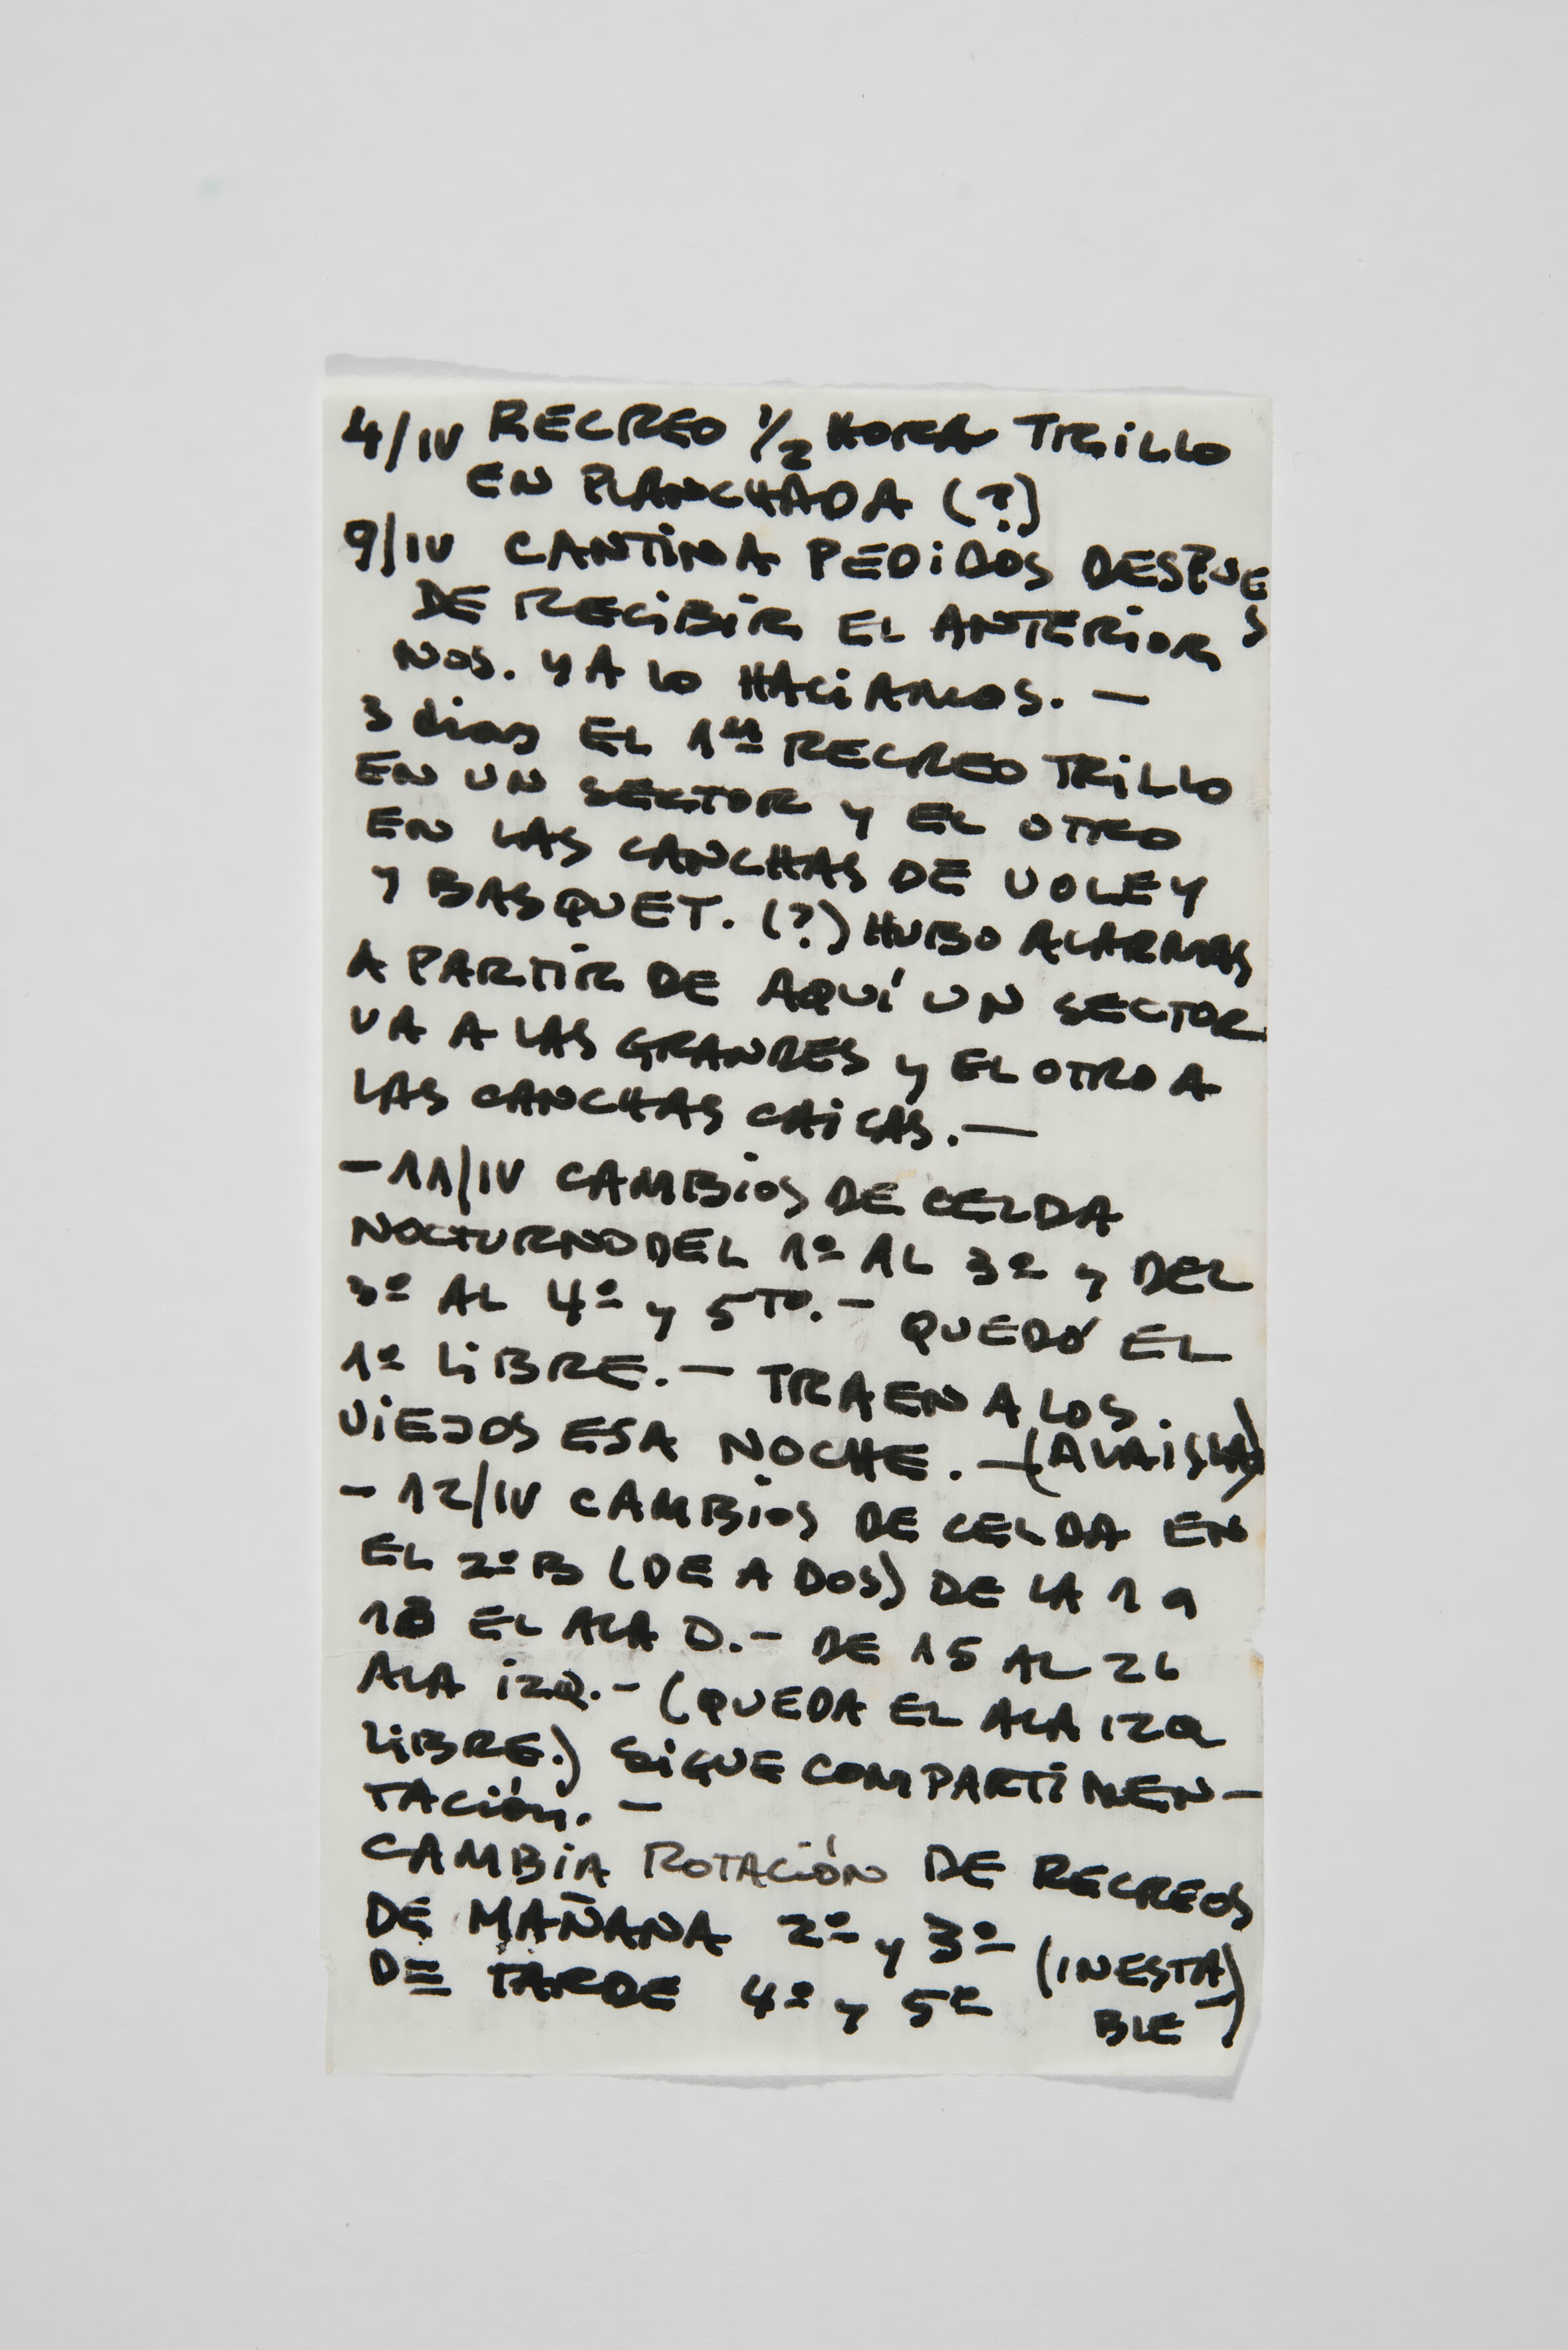 4/IV RECREO 1/2 HORA TRILLO
EN PLANCHADA (?)
9/IV CANTINA PEDIDOS DESPUES
DE RECIBIR EL ANTERIOR
NOS. YA LO HACIAMOS. —
3 dias EL 1er RECREO TRILLO
EN UN SECTOR Y EL OTRO
EN LAS CANCHAS DE VOLEY
Y BASQUET. (?) HUBO ALARMAS
A PARTIR DE AQUÍ UN SECTOR
VA A LAS GRANDES Y EL OTRO A
LAS CANCHAS CHICAS. —
- 11/IV CAMBIOS DE CELDA
NOCTURNO DEL 1º AL 3º Y DEL
3º AL 4º Y 5TO. - QUEDÓ EL
1º LIBRE. — TRAEN A LOS.
VIEJOS ESA NOCHE. —
- 12/IV CAMBIOS DE CELDA EN
EL 2º B (DE A DOS) DE LA 1 a
18 EL ALA D. - DE 15 AL 26
ALA IZQ. - (QUEDA EL ALA IZQ
LIBRE.) SIGUE COMPARTIMEN-
TACIÓN. —
CAMBIA ROTACIÓN DE RECREOS
DE MAÑANA 2º Y 3º (INESTA
DE TARDE 4º Y 5º BLE)